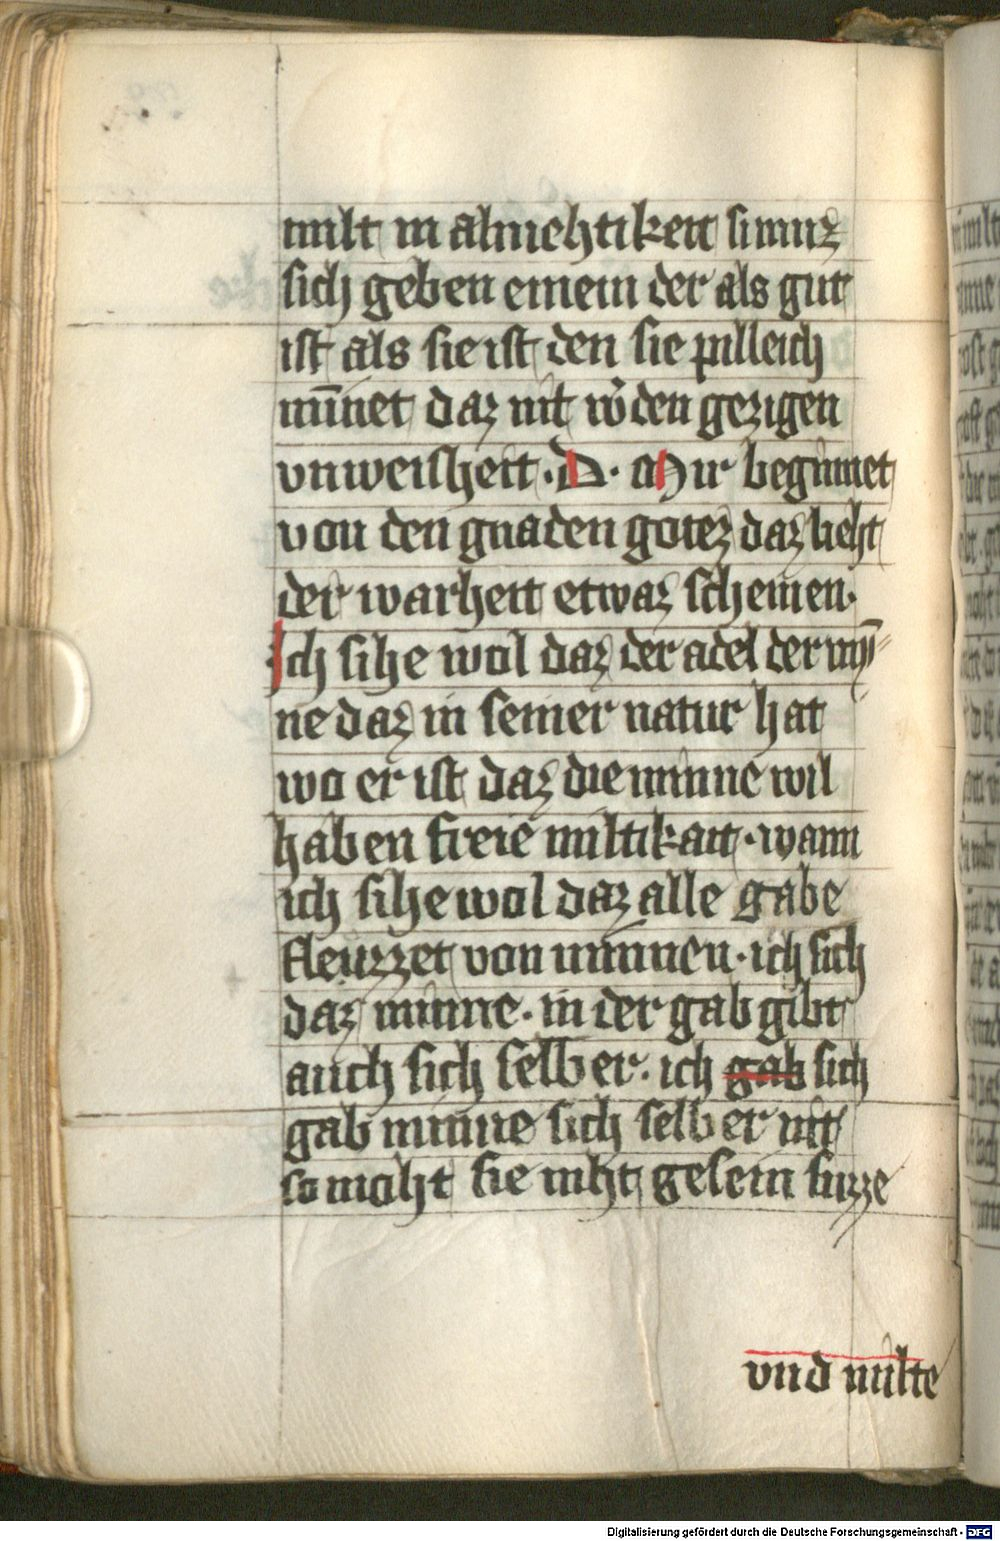 milt in almehtikeit si muz
sich geben einem der als gut
ist als sie ist den sie pilleich
mīnet daz nit wͦden gezigen
vnweisheit · D · Mir beginnet
von den gnaden gotez daz lieht
der warheit etwaz scheinen ·
Ich sihe wol daz der adel der mī⸗
ne daz in seiner natur hat
wo er ist daz die minne wil
haben freie miltikait · wann
ich sihe wol daz alle gabe
fleuzzet von minnen · ich sich
daz minne · in der gab gibt
auch sich selber · ich gab sich
gab minne sich selber nit
so moht sie niht gesein suzze
vnd milte
Digitalisierung gefördert durch die Deutsche Forschungsgemeinschaft - DFG